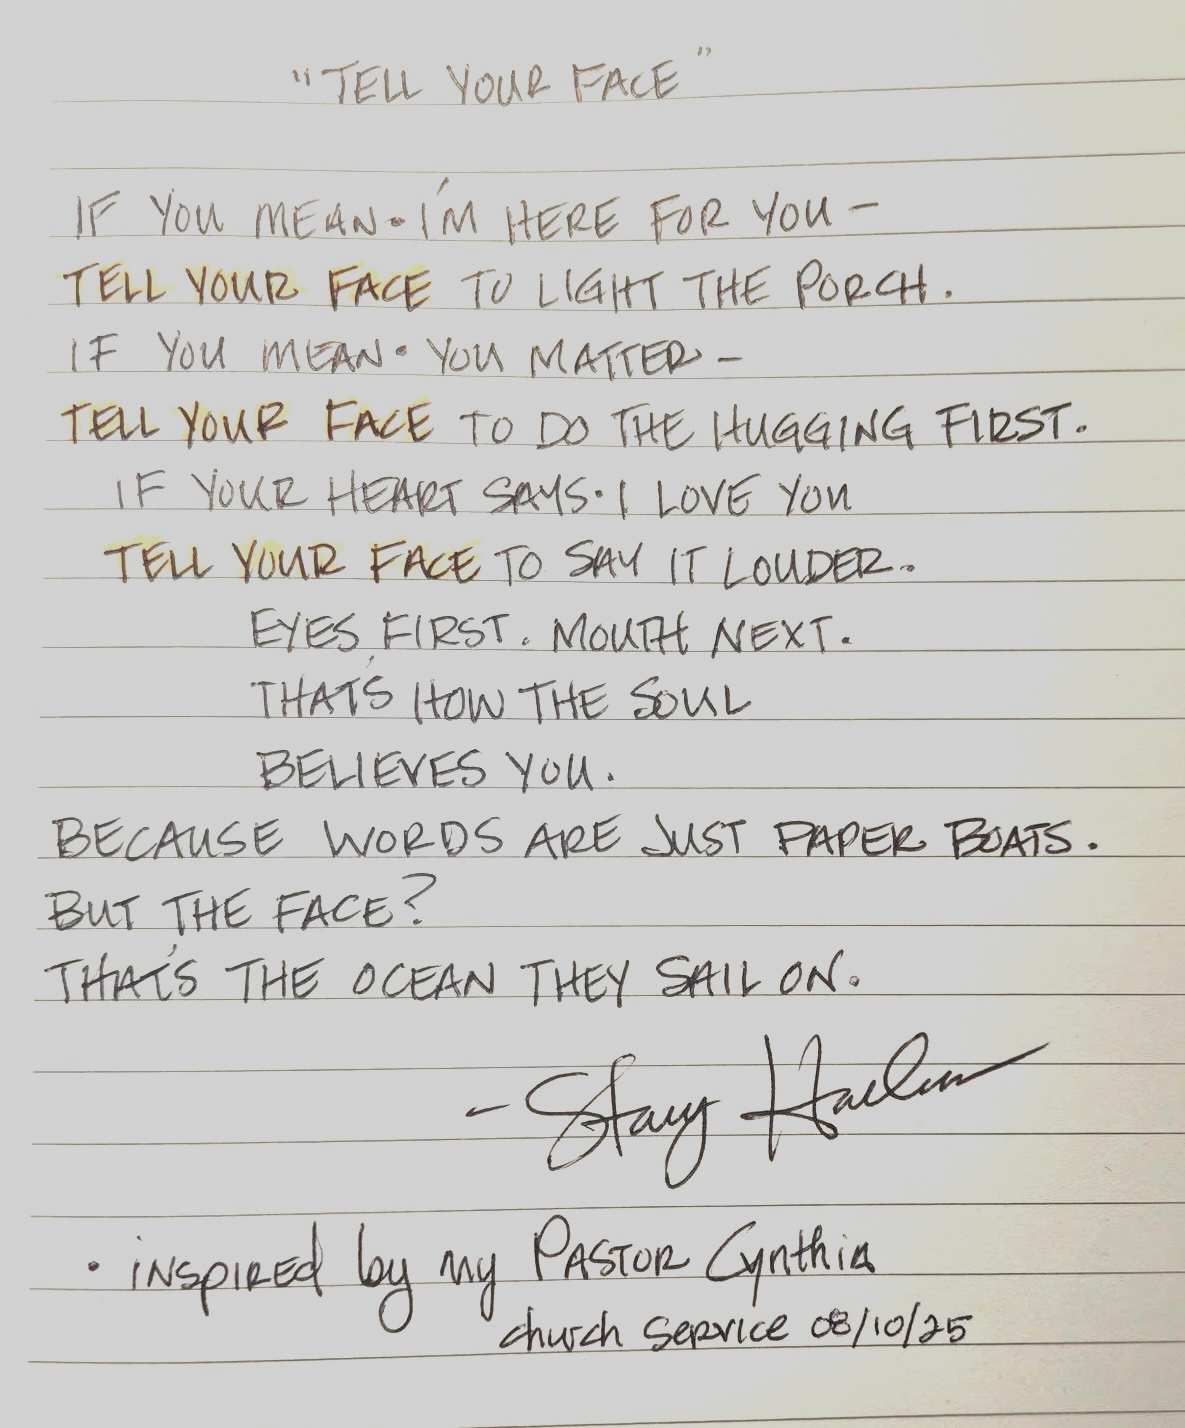 "TELL YOUR FACE"
IF YOU MEAN • I'M HERE FOR YOU –
TELL YOUR FACE TO LIGHT THE PORCH.
IF YOU MEAN • YOU MATTER –
TELL YOUR FACE TO DO THE HUGGING FIRST.
IF YOUR HEART SAYS • I LOVE YOU
TELL YOUR FACE TO SAY IT LOUDER.
EYES FIRST. MOUTH NEXT.
THAT'S HOW THE SOUL
BELIEVES YOU.
BECAUSE WORDS ARE JUST PAPER BOATS.
BUT THE FACE?
THAT'S THE OCEAN THEY SAIL ON.
– Stacy
• INSPIRED by my PASTOR Cynthia
church SERVICE 08/10/25